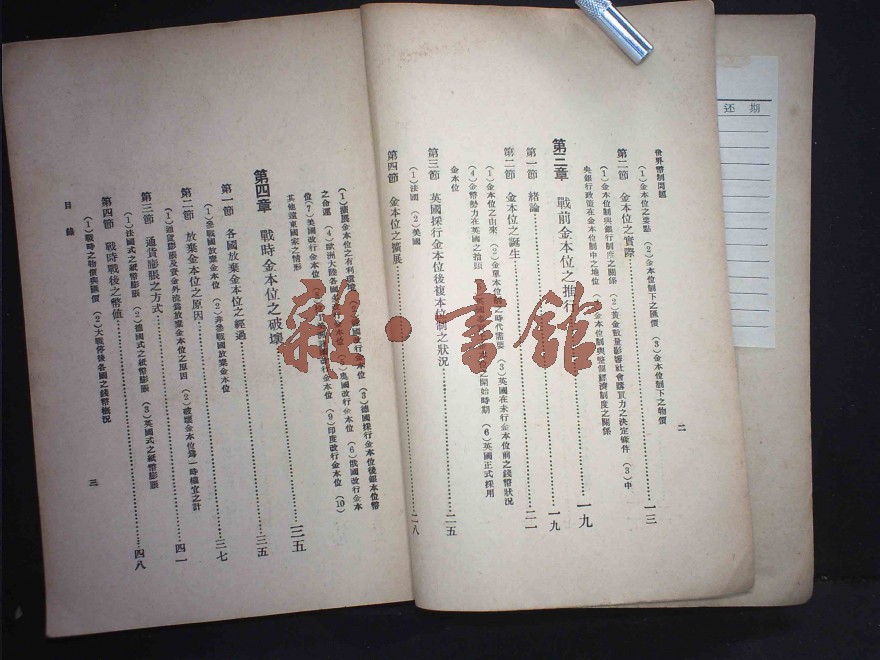 世界幣制問題
二
第二節 金本位之實際……一三
(1)金本位之要點 (2)金本位制下之匯價 (3)金本位制下之物價
(1)金本位制與銀行制度之關係 (2)黃金數量影響社會購買力之決定條件 (3)中
央銀行政策在金本位制中之地位 金本位制與整個經濟制度之關係
第三章 戰前金本位之推行……一九
第一節 緒論……一九
第二節 金本位之誕生……二一
(1)金本位之由來 (2)金單本位制之時代需要 (3)英國在未行金本位前之錢幣狀況
(4)金幣勢力在英國之抬頭 之開始時期 (6)英國正式採用
金本位
第三節 英國採行金本位後複本位制之狀況……二五
(1)法國 (2)美國
第四節 金本位之擴展……二八
(1)擴展金本位之有利環境 國改行金本位 (3)德國採行金本位後銀本位幣
之命運 (4)歐洲大陸各國 金本位 (5)奧國改行金本位 (6)俄國改行金本
位 (7)美國改行金本位 改行金本位 (9)印度改行金本位 (10)
其他遠東國家之情形
第四章 戰時金本位之破壞……三五
第一節 各國放棄金本位之經過……三五
(1)參戰國放棄金本位 (2)非參戰國放棄金本位
第二節 放棄金本位之原因……三七
(1)通貨膨脹及資金外流為放棄金本位之原因 (2)破壞金本位為一時權宜之計
第三節 通貨膨脹之方式……四一
(1)法國式之紙幣膨脹 (2)德國式之紙幣膨脹 (3)英國式之紙幣膨脹
第四節 戰時戰後之幣值……四八
(1)戰時之物價與匯價 (2)大戰停後各國之錢幣概況
目錄
三
还期
书馆